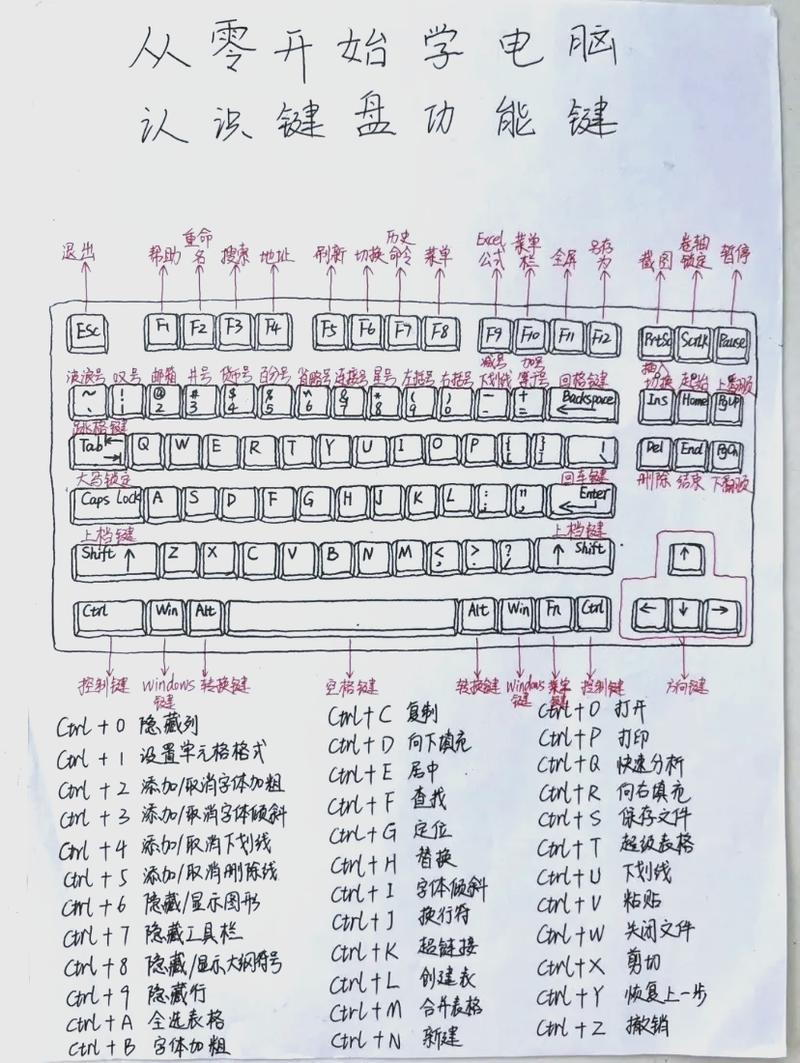 从零开始学电脑
认识键盘功能键
退出 帮助 重命名 搜索 地址 刷新 切换 历史命令 菜单 Excel公式 菜单栏 全屏 另存为 截图 卷轴锁定 暂停
Esc F1 F2 F3 F4 F5 F6 F7 F8 F9 F10 F11 F12 PrtSc ScrLK Pause
波浪号 叹号 邮箱 井号 货币号 百分号 省略号 连接号 星号 左括号 右括号 减号下划线 加号等于号 回格键键 插入切换 起始 上翻页
~ ` ! 1 @ 2 # 3 $ 4 % 5 ^ 6 & 7 * 8 ( 9 ) 0 - - + = Backspace Ins Home PgUp
跳格键键
Tab Q W E R T Y U I O P { [ } ] | \ Del End PgDn
大写锁定 回车键键 删除 结束 下翻页
Caps Lock A S D F G H J K L : ; " , Enter
上档键键 上档键键
Shift ↑ Z X C V B N M < , > . ? / ↑ Shift ↑
Ctrl Win Alt Alt Win Fn Ctrl ← ↓ →
控制键 Windows键 转换键 空格键 转换键 Windows键 菜单键 控制键 方向键
Ctrl + 0 隐藏列
Ctrl + 1 设置单元格格式
Ctrl + 2 添加/取消字体加粗
Ctrl + 3 添加/取消字体倾斜
Ctrl + 4 添加/取消下划线
Ctrl + 5 添加/取消删除线
Ctrl + 6 隐藏/显示图形
Ctrl + 7 隐藏工具栏
Ctrl + 8 隐藏/显示大纲符号
Ctrl + 9 隐藏行
Ctrl + A 全选表格
Ctrl + B 字体加粗
Ctrl + C 复制
Ctrl + D 向下填充
Ctrl + E 居中
Ctrl + F 查找
Ctrl + G 定位
Ctrl + H 替换
Ctrl + I 字体倾斜
Ctrl + J 换行符
Ctrl + K 超链接
Ctrl + L 创建表
Ctrl + M 合并表格
Ctrl + N 新建
Ctrl + O 打开
Ctrl + P 打印
Ctrl + Q 快速分析
Ctrl + R 向右填充
Ctrl + S 保存文件
Ctrl + T 超级表格
Ctrl + U 下划线
Ctrl + V 粘贴
Ctrl + W 关闭文件
Ctrl + X 剪切
Ctrl + Y 恢复上一步
Ctrl + Z 撤销